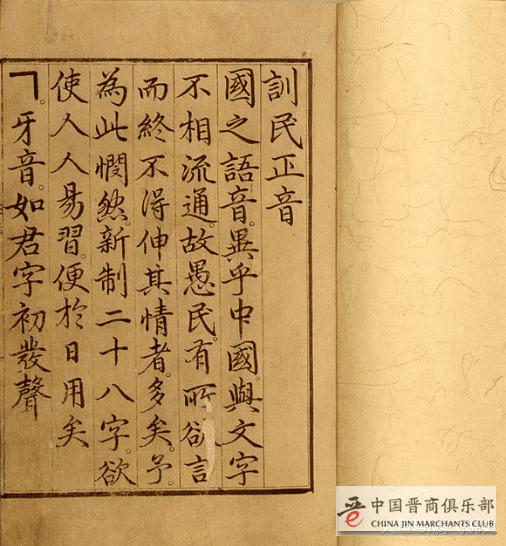 訓民正音
國之語音。異乎中國。與文字
不相流通。故愚民。有所欲言
而終不得伸其情者。多矣。予。
為此憫然。新制二十八字。欲
使人人易習。便於日用矣
ㄱ。牙音。如君字初發聲
中国晋商俱乐部
CHINA JIN MARCHANTS CLUB